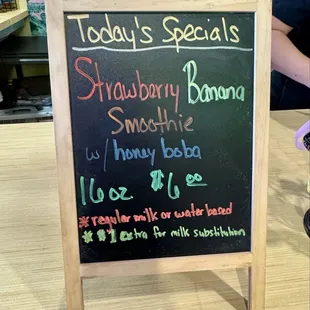 Today's Specials
Strawberry Banana
Smoothie
w/ honey boba
16 oz $6.00
*regular milk or water based
*$1 extra for milk substitution